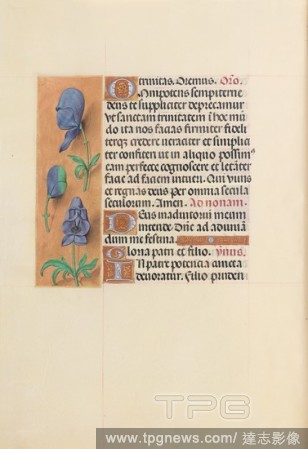 O trinitas. Oremus. Oro.
Omnipotens sempiterne
deus te suppliciter deprecamur
ut sanctam trinitatem i hoc mu
do ita nos facias firmiter fideli
terqz credere veraciter et simplici
ter confiteri ut in aliquo possim
eam perfecte cognoscere et letater
facie ad faciem intueri. Qui vivis
et regnas deus per omnia secula
seculorum. Amen. Ad nonam.
Deus in adiutorium meum
intende. Dne ad adiuva
dum me festina.
Gloria patri et filio. ymnus.
In patre potencia cuncta
devoratur. Filio pruden
TPG
www.tpgnews.com/ 達志影像